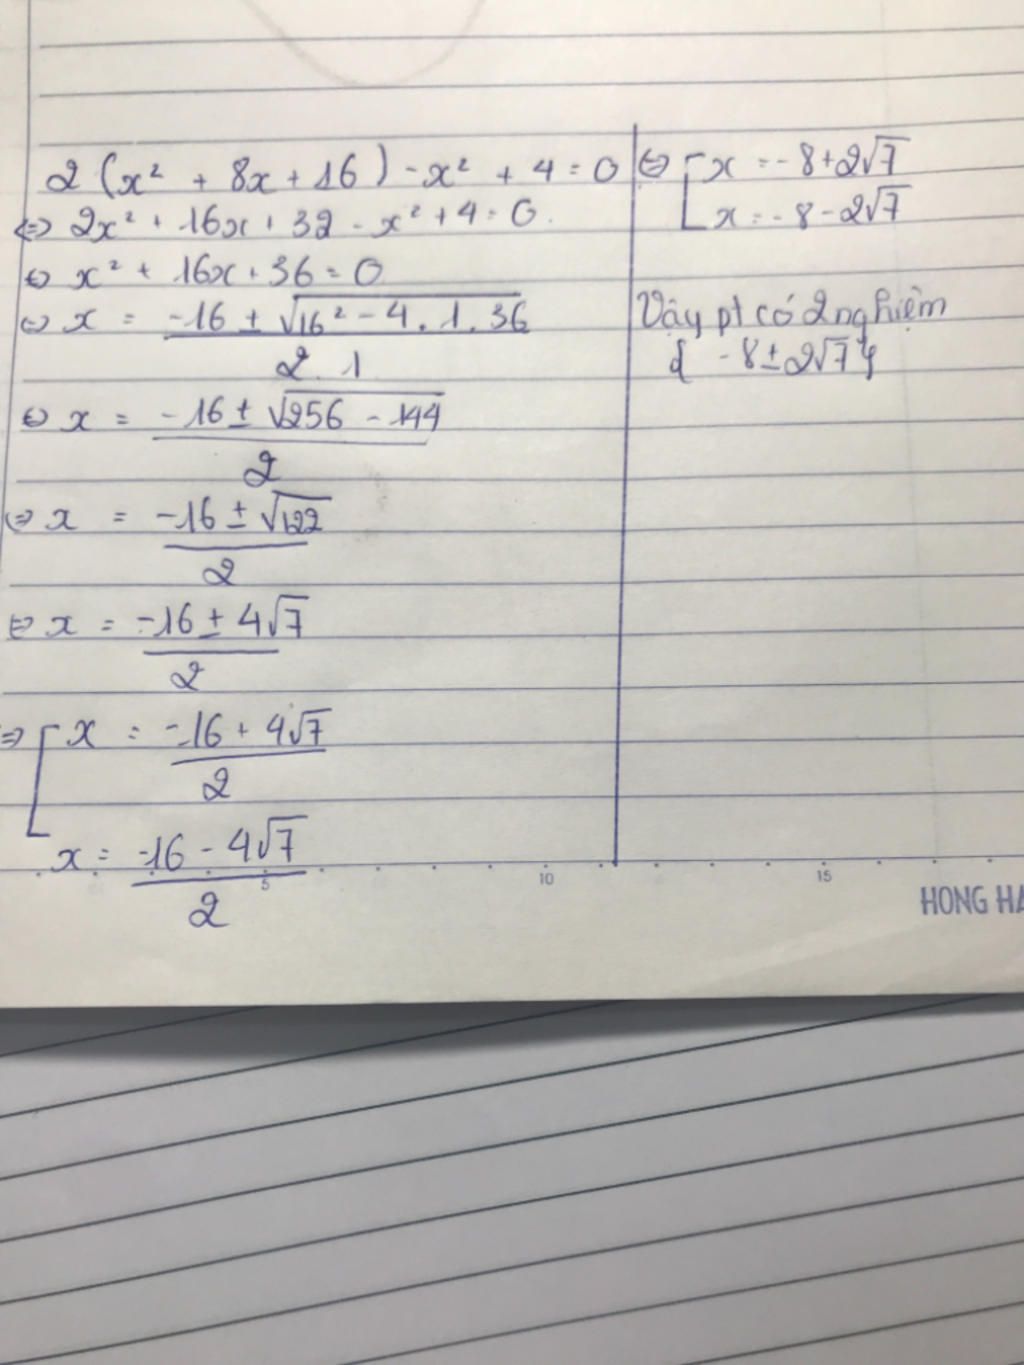 2(x² + 8x + 16) - x² + 4 = 0
⇔ 2x² + 16x + 32 - x² + 4 = 0.
⇔ x² + 16x + 36 = 0
⇔ x = (-16 ± √(16² - 4.1.36)) / (2.1)
⇔ x = (-16 ± √(256 - 144)) / 2
⇔ x = (-16 ± √122) / 2
⇔ x = (-16 ± 4√7) / 2
⇒ [ x = (-16 + 4√7) / 2
x = (-16 - 4√7) / 2
⇔ [ x = -8 + 2√7
x = -8 - 2√7
Vậy pt có 2 nghiệm
{ -8 ± 2√7 }
5 10 15
HONG HA